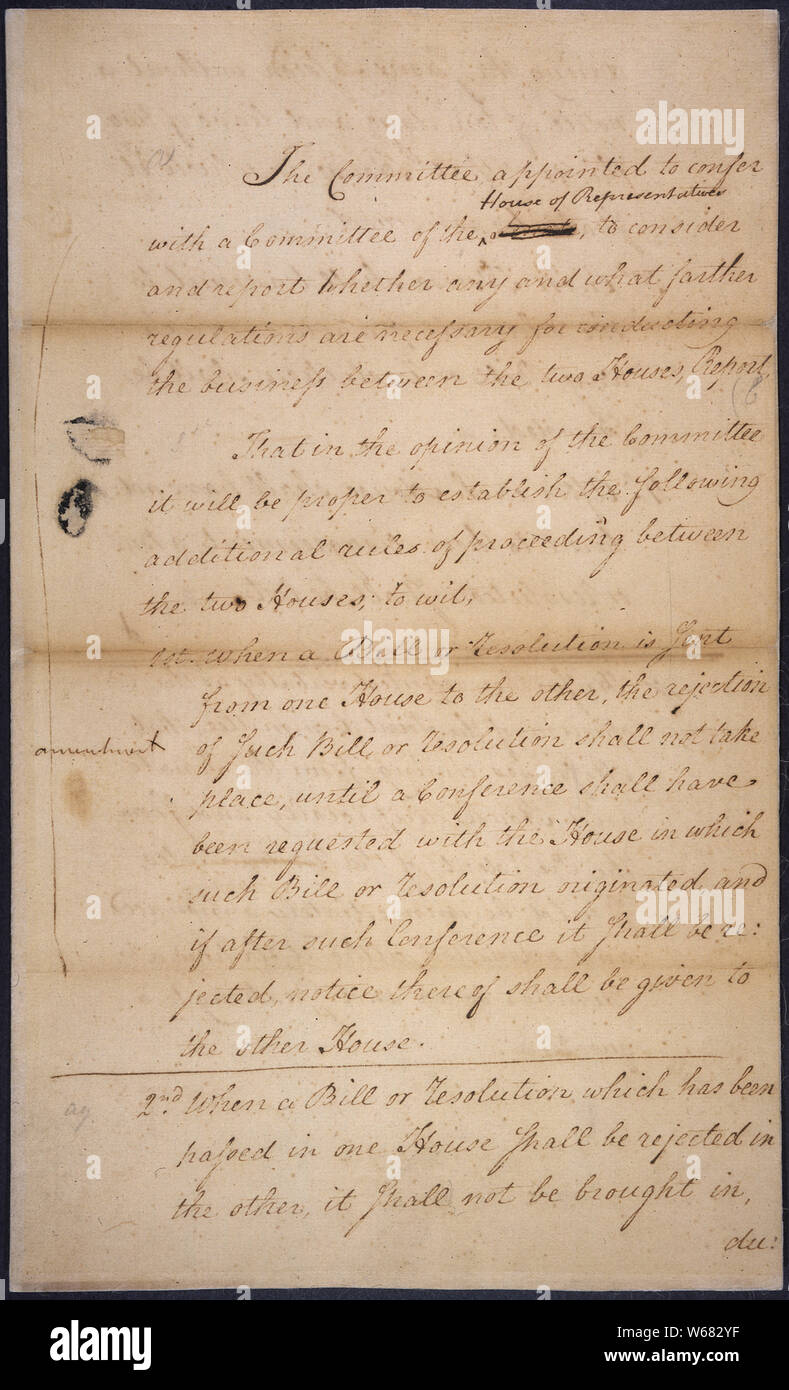 The Committee appointed to confer
House of Representatives
with a Committee of the ^, to consider
and report whether any and what farther
regulations are necessary for conducting
the business between the two Houses, Report,
That in the opinion of the Committee
it will be proper to establish the following
additional rules of proceeding between
the two Houses, to wit,
1st. When a Bill or Resolution is sent
from one House to the other, the rejection
amendment of such Bill or Resolution shall not take
place, until a Conference shall have
been requested with the House in which
such Bill or Resolution originated, and
if after such Conference it shall be re:
jected, notice thereof shall be given to
the other House.
ag 2nd When a Bill or Resolution which has been
passed in one House shall be rejected in
the other, it shall not be brought in,
du:
alamy
Image ID: W682YF
www.alamy.com